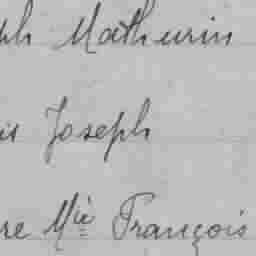 ph Mathurin
is Joseph
re Mie François